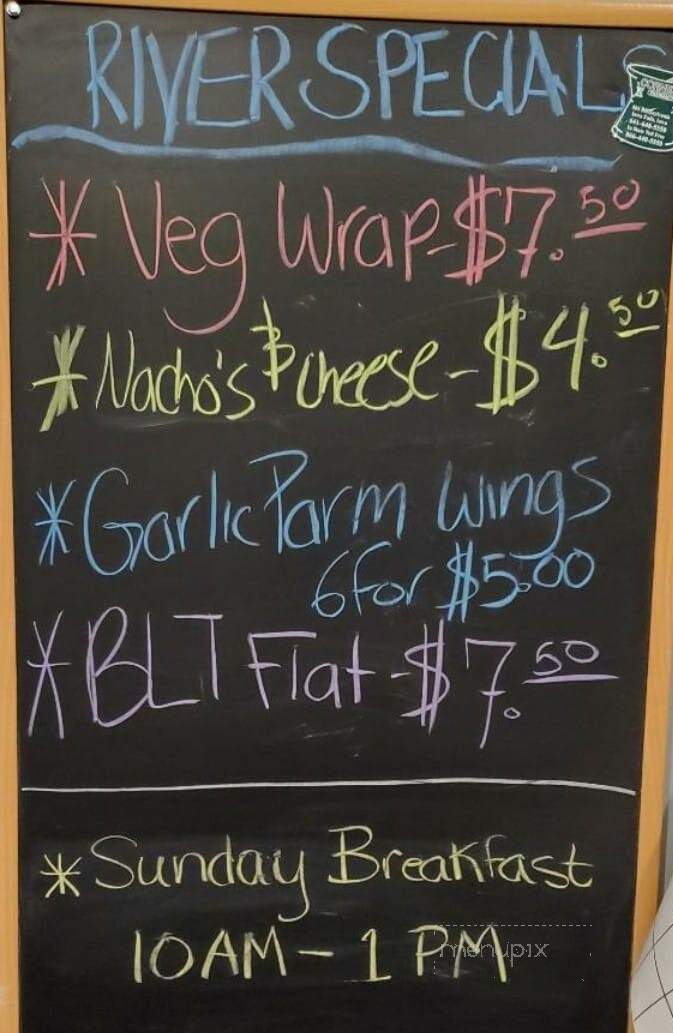 RIVER SPECIALS
* Veg Wrap - $7.50
* Nacho's & cheese - $4.50
* Garlic Parm Wings
6 for $5.00
* BLT Flat - $7.50
* Sunday Breakfast
10AM - 1 PM
menupix